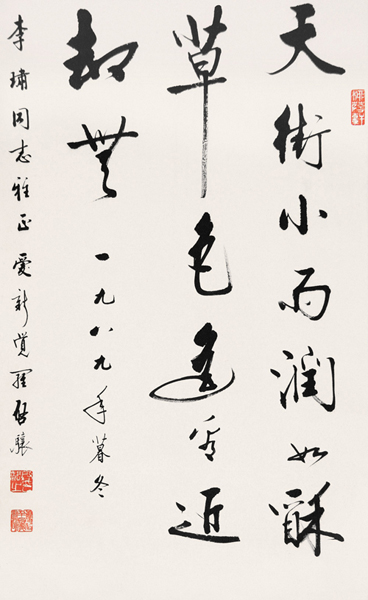 天街小雨润如酥
草色遥看近
却無 一九八九年暮冬
李璛同志雅正 爱新觉罗启骧